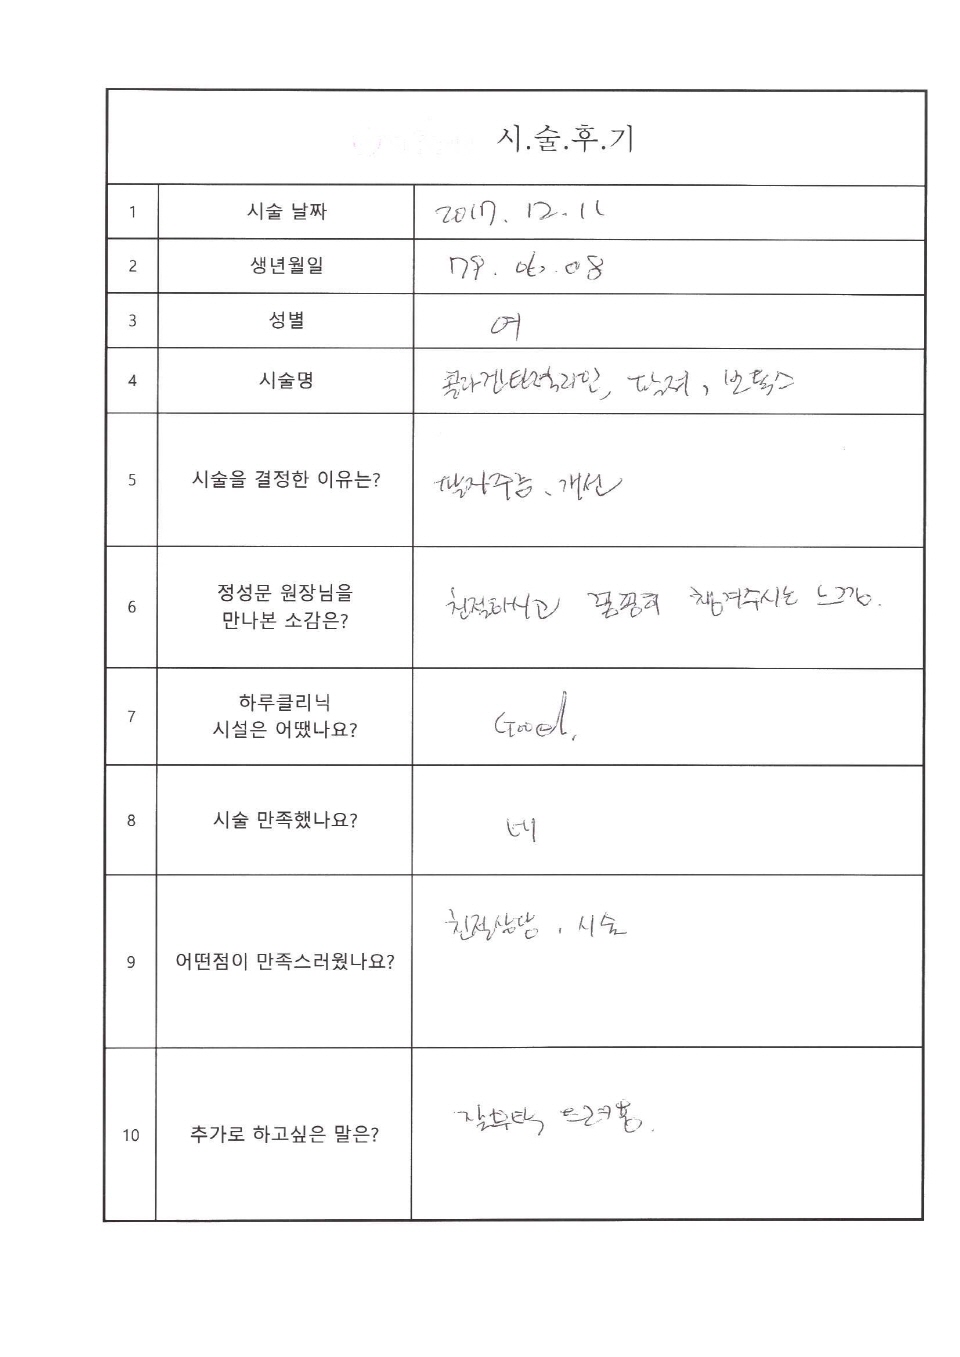 시.술.후.기
1 시술 날짜 2017. 12. 11
2 생년월일 79. 06. 08
3 성별 여
4 시술명 콜라겐탄력리인, 팔져, 보톡스
5 시술을 결정한 이유는? 팔자주름、개선
6 정성문 원장님을
만나본 소감은? 친절하시고 꼼꼼히 챙겨주시는 느낌.
7 하루클리닉
시설은 어땠나요? Good.
8 시술 만족했나요? 네
9 어떤점이 만족스러웠나요? 친절상담, 시술
10 추가로 하고싶은 말은? 잘부탁 드려용.